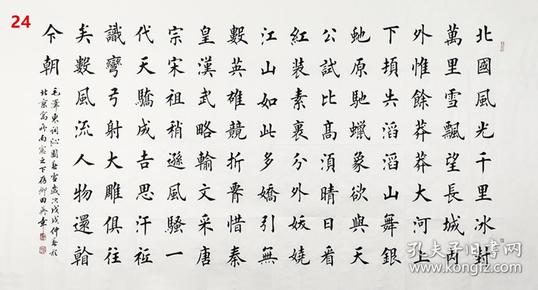 24
北國風光千里冰封
萬里雪飄望長城內
外惟餘莽莽大河上
下頓失滔滔山舞銀
蛇原馳蠟象欲與天
公試比高須晴日看
紅裝素裹分外妖嬈
江山如此多嬌引無
數英雄競折腰惜秦
皇漢武略輸文采唐
宗宋祖稍遜風騷一
代天驕成吉思汗祗
識彎弓射大雕俱往
矣數風流人物還看
今朝
毛澤東詞沁園春雪歲次戊戌仲春於
北京南窓之下田英章
孔夫子旧书网
book.kongfz.com